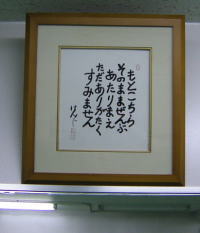 もとこちら
そのままぜんぶ
あたりまえ
ただありがたく
すみません